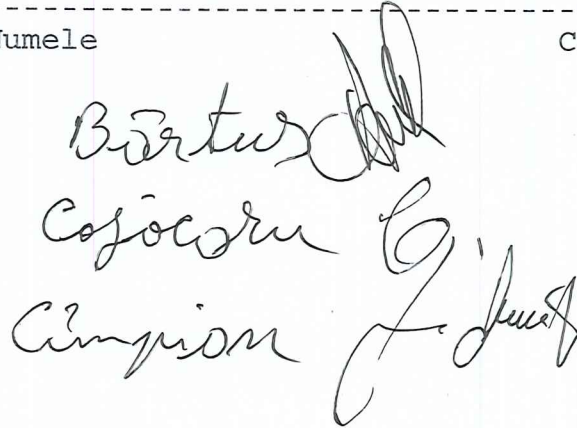 Numele C
Bârtus
Cojocaru
Cîmpion